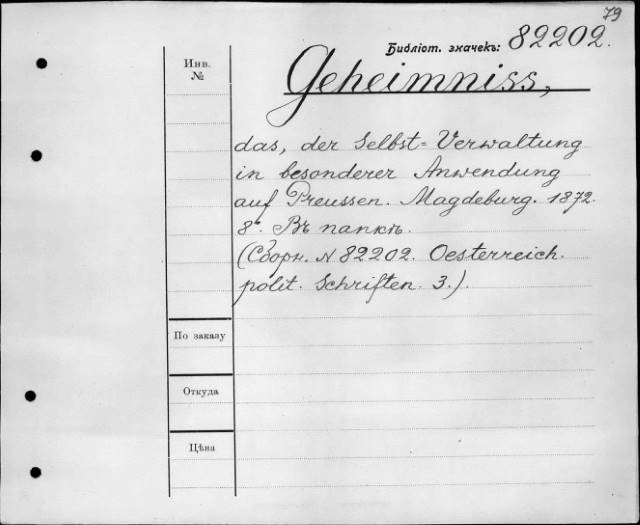 79
Библіот. значекъ: 82202.
Инв.
№
Geheimniss,
das, der Selbst=Verwaltung
in besonderer Anwendung
auf Preussen. Magdeburg. 1872.
8°. Въ папкѣ.
(Сборн. N 82202. Oesterreich.
polit. Schriften. 3.).
По заказу
Откуда
Цѣна